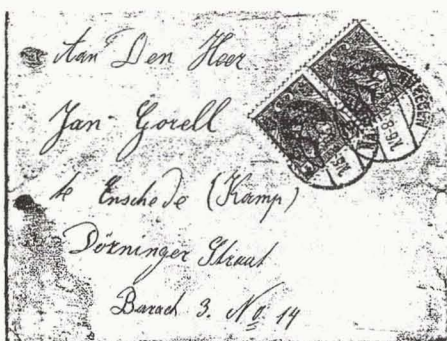 Aan Den Heer
Jan Gorell
te Enschede (Kamp)
Dörninger Straat
Barack 3. No 14